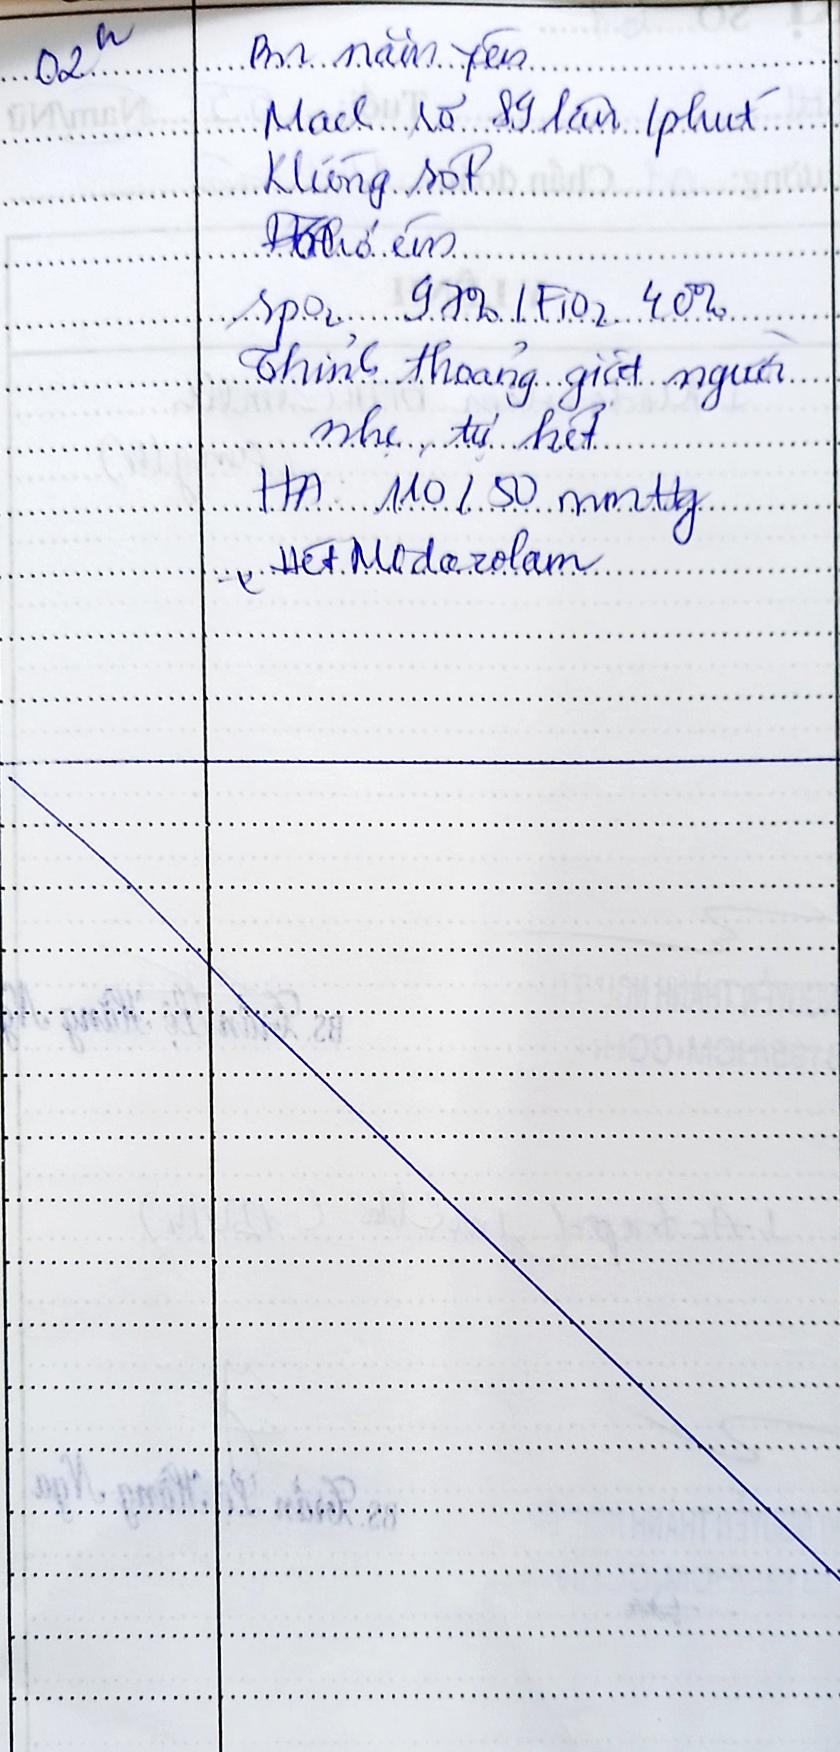 02h Bn nằm yên
Mạch rõ 89 lần /phút
Không sốt
Thở êm
SpO2 97% / FiO2 40%
Thỉnh thoảng giật người
nhẹ, tự hết
HA: 110 / 50 mmHg
Hết Midazolam